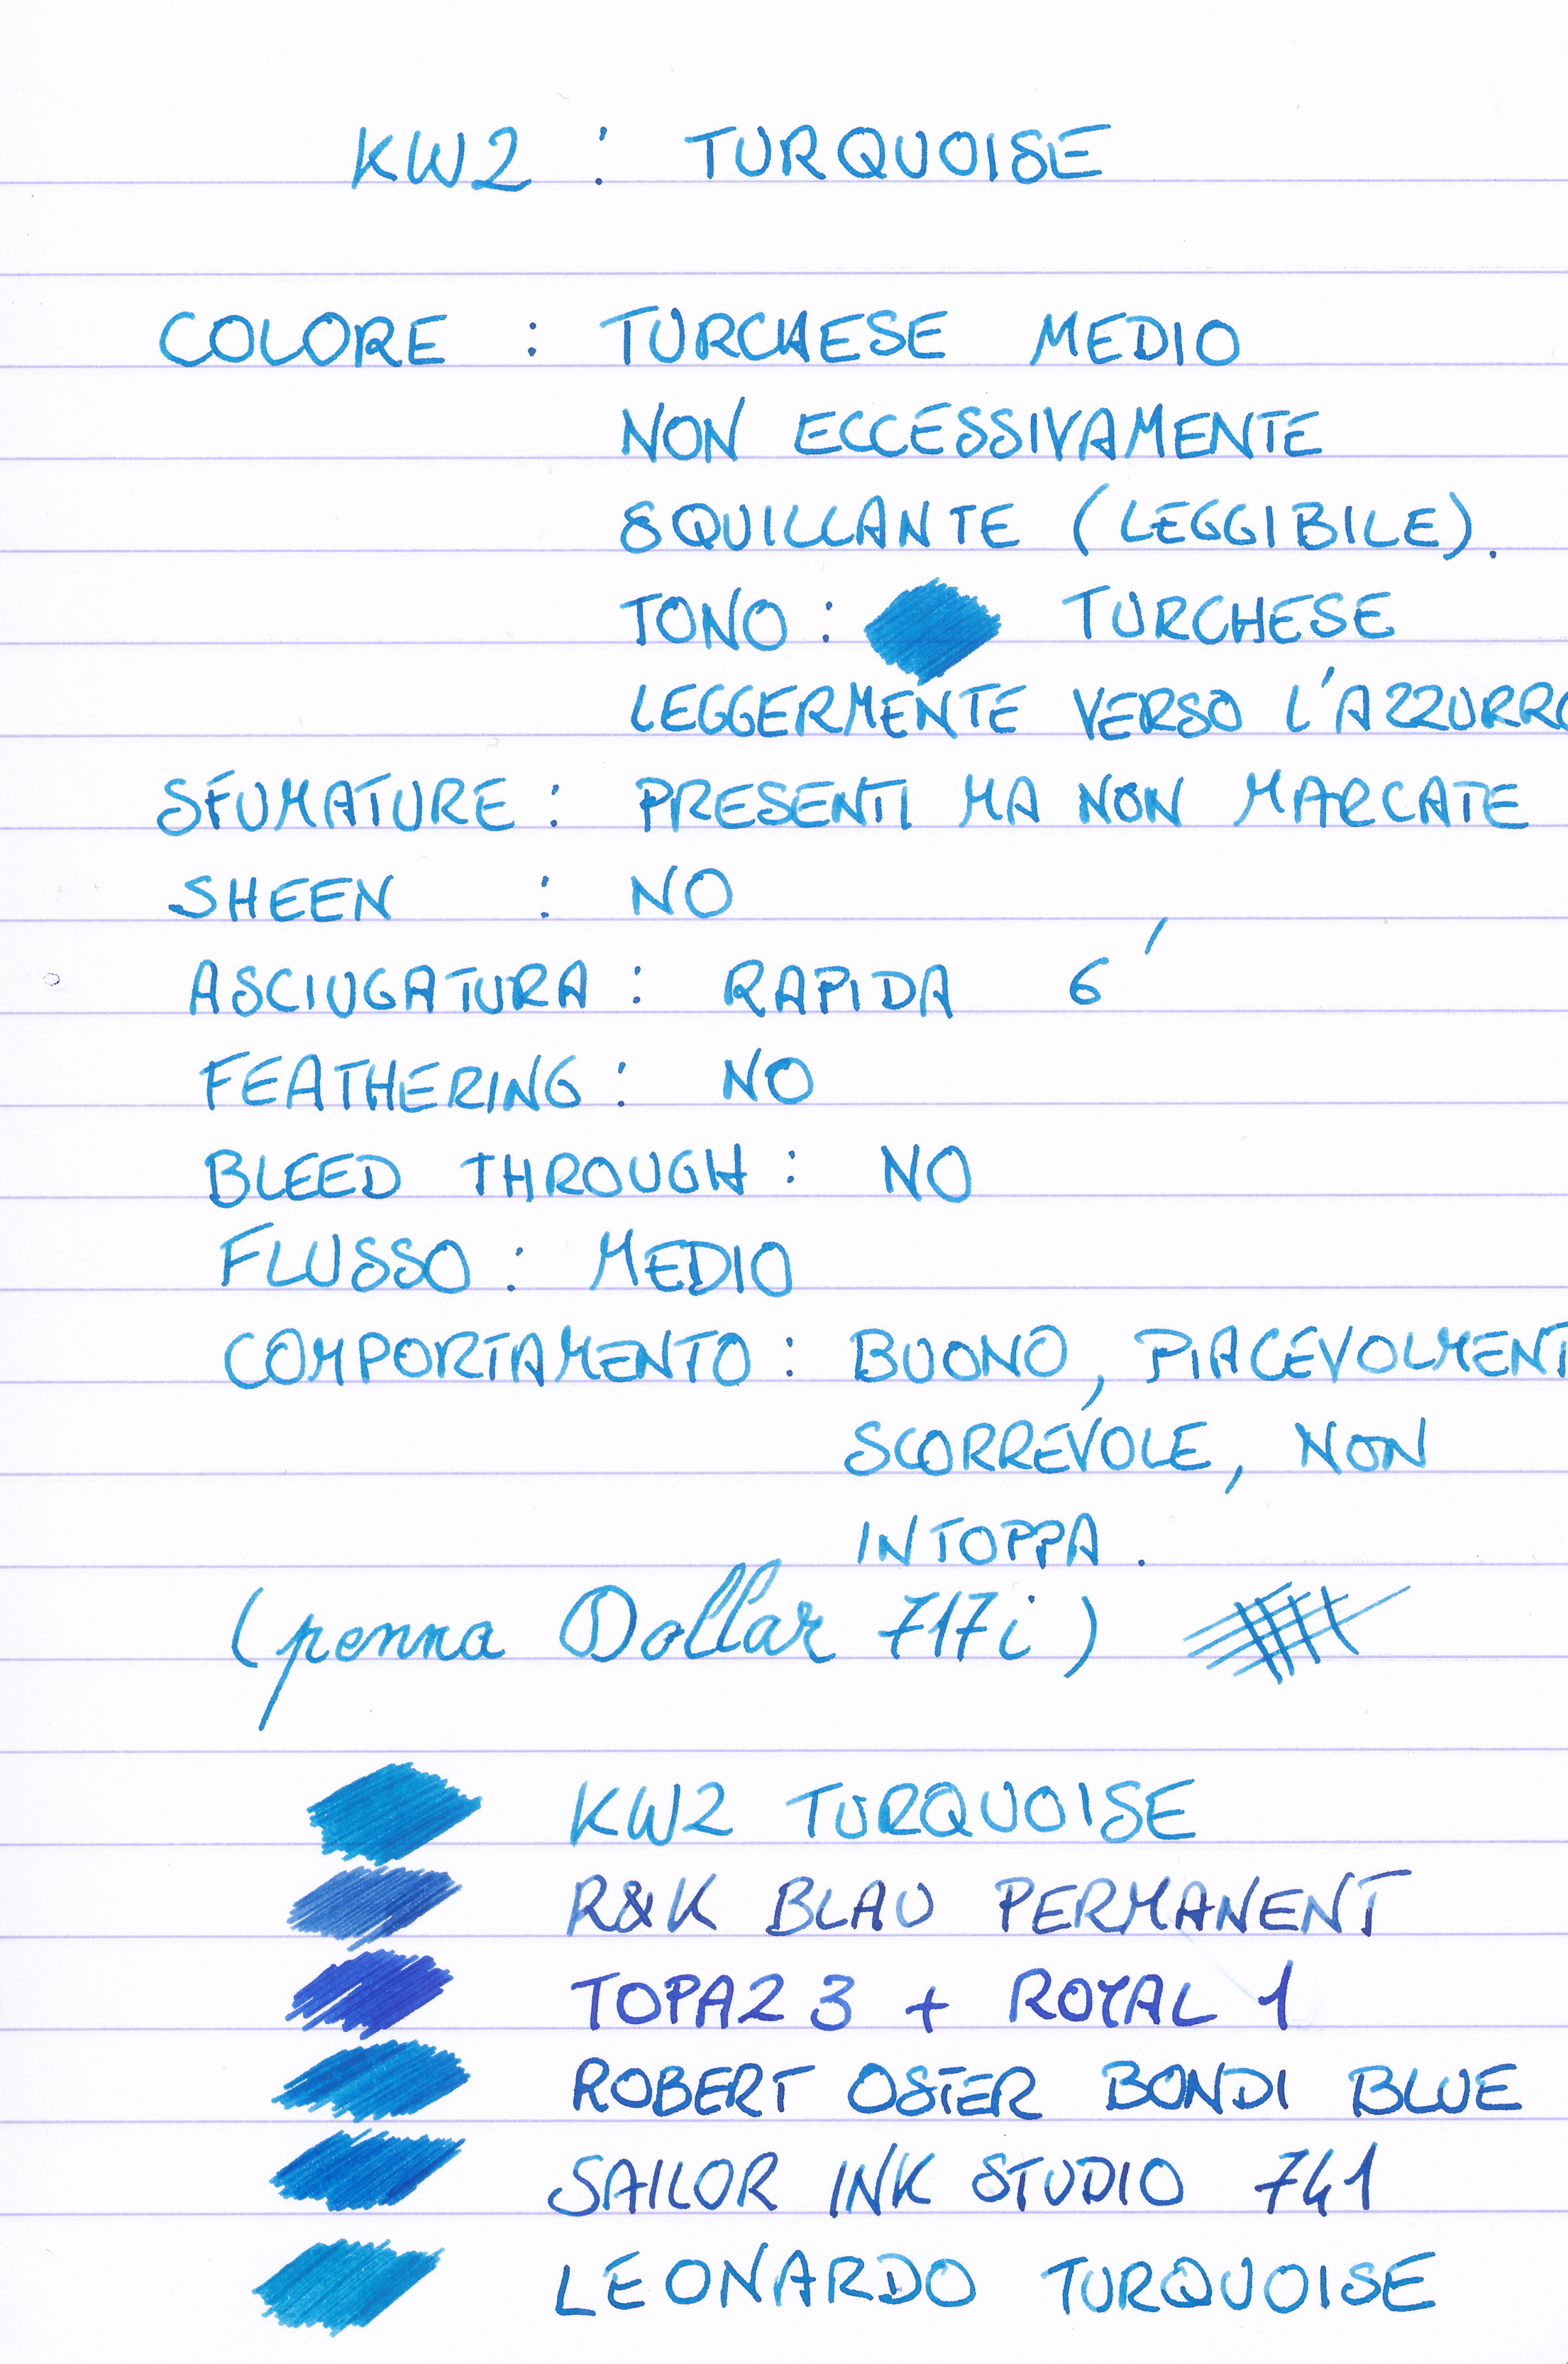 KW2 : TURQUOISE
COLORE : TURCHESE MEDIO
NON ECCESSIVAMENTE
SQUILLANTE (LEGGIBILE).
TONO : TURCHESE
LEGGERMENTE VERSO L'AZZURRO
SFUMATURE : PRESENTI MA NON MARCATE
SHEEN : NO
ASCIUGATURA : RAPIDA 6'
FEATHERING : NO
BLEED THROUGH : NO
FLUSSO : MEDIO
COMPORTAMENTO : BUONO, PIACEVOLMENT
SCORREVOLE, NON
INTOPPA.
(penna Dollar 717i)
KW2 TURQUOISE
R&K BLAU PERMANENT
TOPAZ 3 + ROYAL 1
ROBERT OSTER BONDI BLUE
SAILOR INK STUDIO 741
LEONARDO TURQUOISE